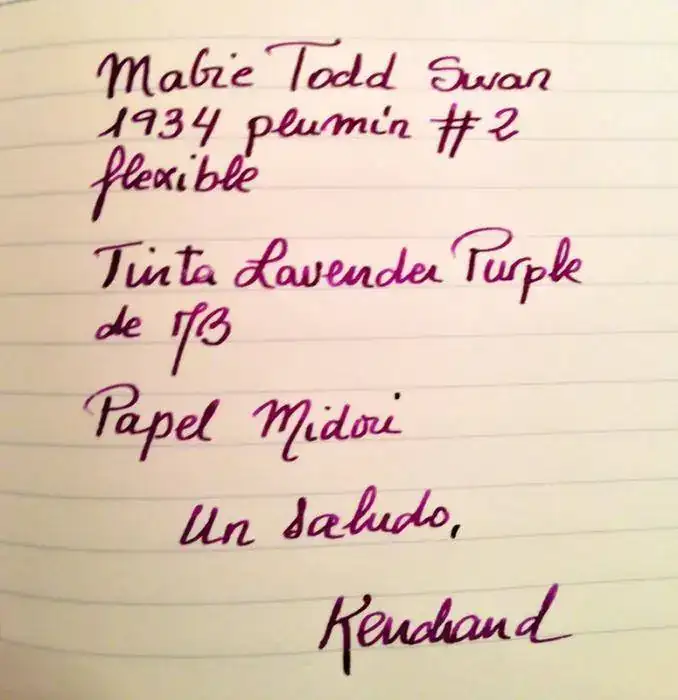 Mabie Todd Swan
1934 plumín #2
flexible
Tinta Lavender Purple
de MB
Papel Midori
Un saludo,
Kenchand